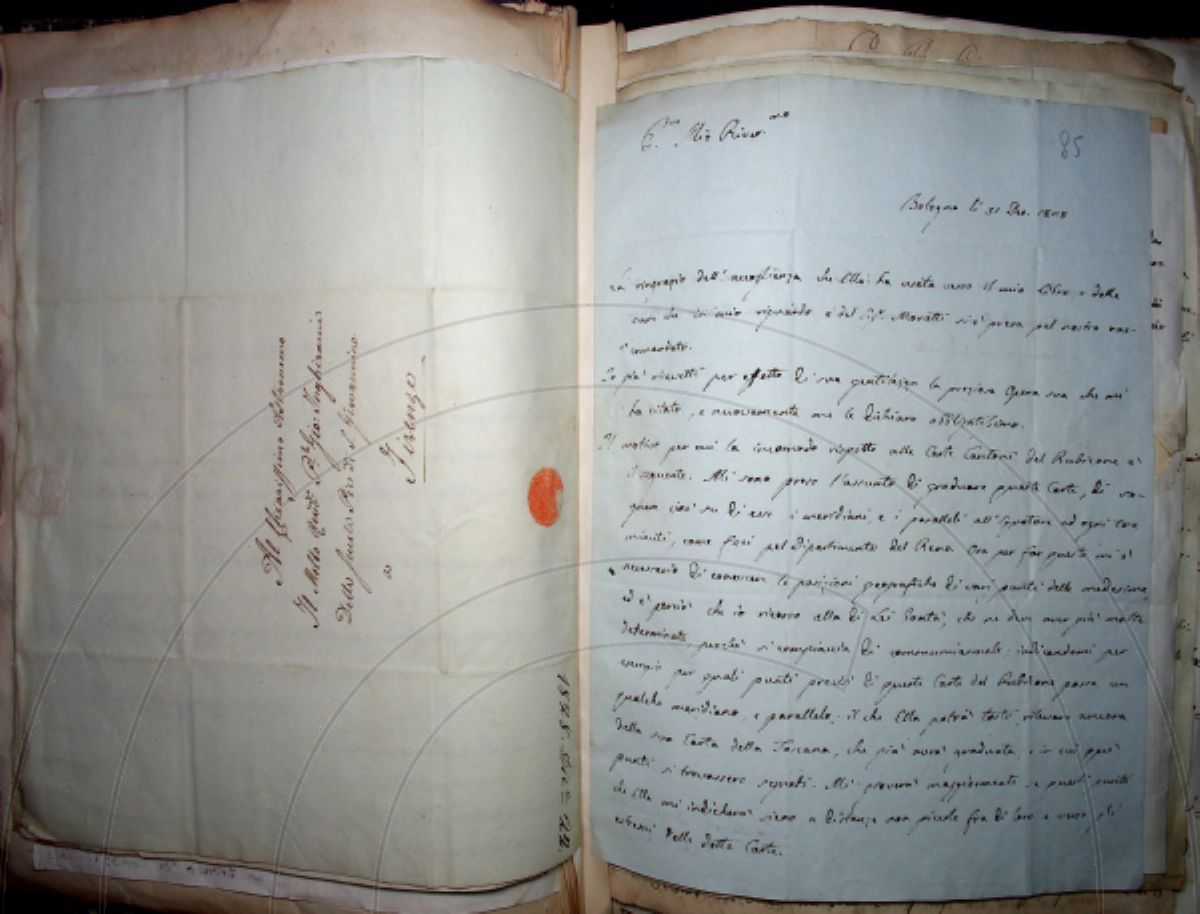 Al Chiarissimo
Il Molto Revdo Pre Gio: Inghirami
Delle Scuole Pie di S. Giovannino
a
Firenze
1828
85
Bologna li 31 Dec. 1828
La ringrazio dell' accoglienza che Ella ha usata verso il mio libro, e della
cura che in mio riguardo e del Sigr. Moratti si è presa pel nostro rac-
comandato.
Io già ricevetti per effetto di sua gentilezza la preziosa Opera sua che mi
ha citato, e nuovamente me le dichiaro obbligatissimo.
Il motivo per cui la incomodo rispetto alle Carte Cantoni del Rubicone è
il seguente. Mi sono preso l'assunto di graduare queste Carte, di se-
gnare cioè su di esse i meridiani e i paralleli all'Equatore ad ogni
minuti, come feci pel Dipartimento del Reno. Ora per far questo mi è
necessario di conoscere le posizioni geografiche di vari punti delle medesime
ed è perciò che io ricorro alla di Lei bontà, che ne deve aver già molte
determinate, perchè si compiaccia di comunicarmele indicandomi per
esempio per quali punti precisi di queste Carte del Rubicone passa un
qualche meridiano, e parallelo; il che Ella potrà tosto rilevare ancora
dalla sua Carta della Toscana, che già avrà graduata e in cui que'
punti si trovassero segnati. Mi gioverà maggiormente se questi punti
che Ella mi indicherà sieno a distanza non piccola fra di loro e verso gli
estremi delle dette Carte.